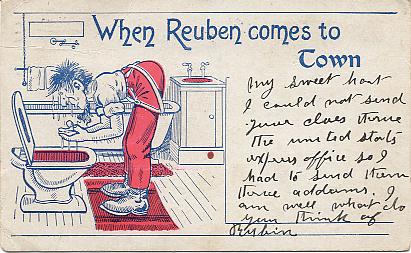 When Reuben comes to
Town
my sweet hart
I could not send
your cloes thrue
the united stats
express office so I
had to send them
thrue addams. I
am well what do
you think of
Rubin